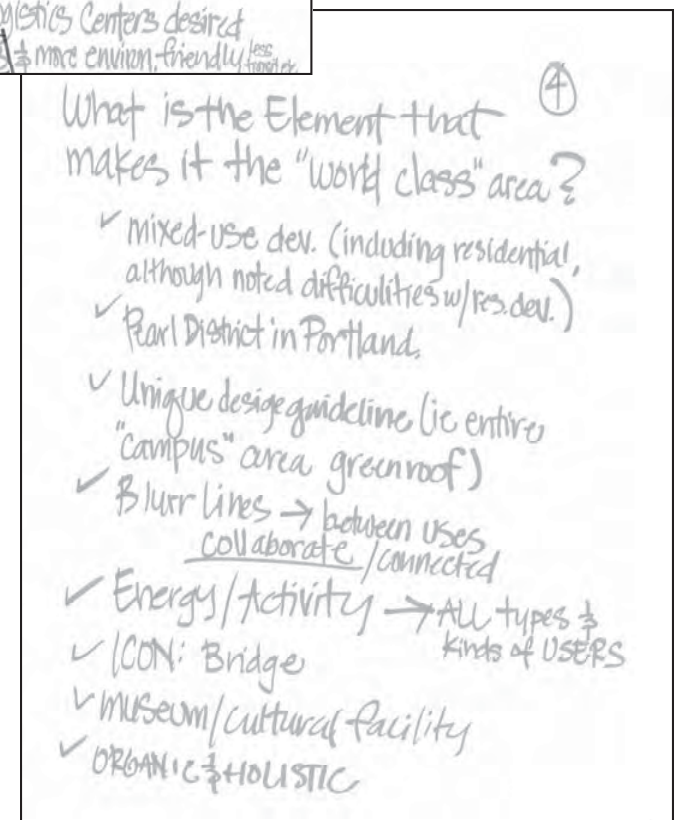 gistics Centers desired
& more environ. friendly less
④
What is the Element that
makes it the "world class" area?
✓ mixed-use dev. (including residential,
although noted difficulities w/res. dev.)
✓ Pearl District in Portland.
✓ Unique desige guideline (ie entire
"campus" area greenroof)
✓ Blurr lines → between uses
collaborate/connected
✓ Energy/Activity → ALL types &
kinds of USERS
✓ ICON: Bridge
✓ museum/cultural facility
✓ ORGANIC & HOLISTIC